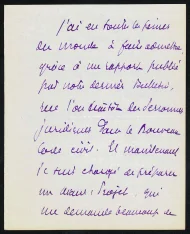 J'ai eu toutes les peines
du monde à faire admettre,
grâce à un rapport publié
par notre dernier Bulletin,
que l'on traitera des Personnes
juridiques dans le Nouveau
Code civil. Et maintenant
je suis chargé de préparer
un avant-Projet, qui
me demande beaucoup de